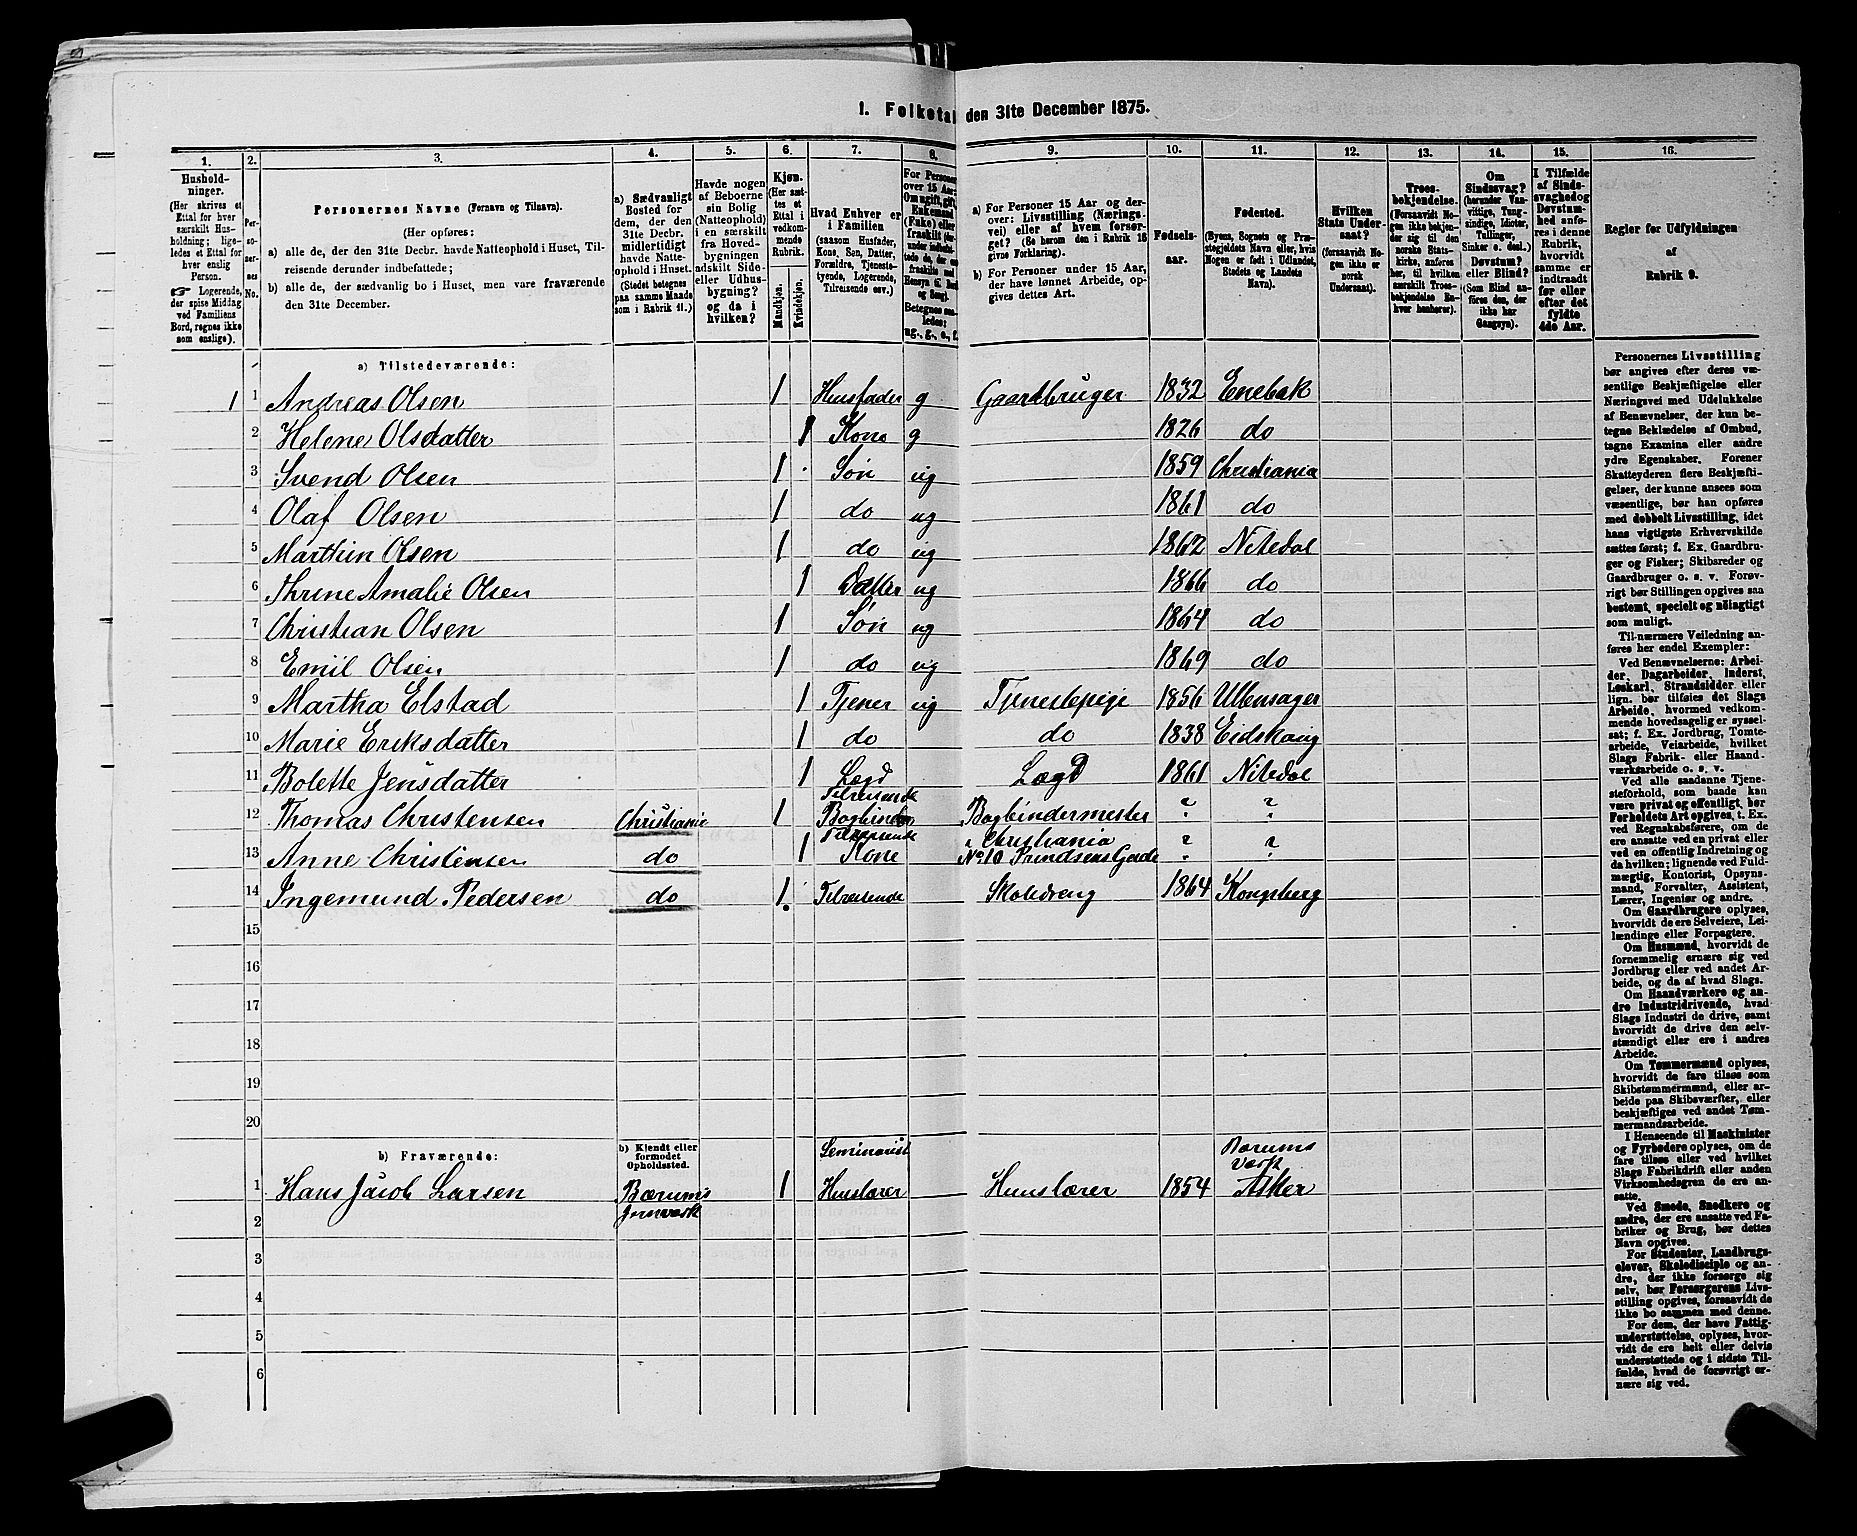 1. Folketal den 31te December 1875.
1. 2. 3. 4. 5. 6. 7. 8. 9. 10. 11. 12. 13. 14. 15. 16.
Husholdninger.
(Her skrives et
Ettal for hver
særskilt Husholdning;
ligeledes
et Ettal for
hver enslig
Person.
☞ Logerende,
der spise Middag
ved Familiens
Bord, regnes ikke
som enslige).
Personernes No.
Personernes Navne (Fornavn og Tilnavn).
(Her opføres:
a) alle de, der den 31te Decbr. havde Natteophold i Huset, Tilreisende derunder indbefattede;
b) alle de, der sædvanlig bo i Huset, men vare fraværende
den 31te December.
a) Sædvanligt
Bosted for
dem, der den
31te Decbr.
midlertidigt
havde Natteophold
i Huset.
(Stedet betegnes
paa samme Maade
som i Rubrik 11.)
Havde nogen
af Beboerne
sin Bolig
(Natteophold)
i en særskilt
fra Hovedbygningen
adskilt Side- eller Udhusbygning?
og da i
hvilken?
Kjøn.
(Her sættes et
Ettal i
vedkommende
Rubrik.
Mandkjøn.
Kvindekjøn.
Hvad Enhver er
i Familien
(saasom Husfader,
Kone, Søn, Datter,
Forældre, Tjenestetyende, Logerende,
Tilreisende osv.)
For Personer
over 15 Aar:
ug., g., e., f.
a) For Personer 15 Aar og derover: Livsstilling (Næringsvei) eller af hvem forsørget? (Se herom den i Rubrik 16
givne Forklaring).
b) For Personer under 15 Aar,
der have lønnet Arbeide, opgives dettes Art.
Fødselsaar.
Fødested.
(Byens, Sognets og Præstegjeldets Navn eller, hvis
Nogen er født i Udlandet,
Stedets og Landets
Navn).
Hvilken
Stats Undersaat?
(forsaavidt Nogen ikke er
norsk
Undersaat).
Troesbekjendelse.
(Forsaavidt Nogen ikke bekjender sig til den
norske Statskirke, anføres
her, til hvilken
særskilt Troesbekjendelse Enhver henhører).
Om
Sindssvag?
(herunder Vanvittige, Tungsindige, Idioter,
Tullinger,
Sinker o. desl.)
Døvstum?
eller Blind?
(Som Blind anføres den, der
ikke har
Gangsyn).
I Tilfælde
af Sindssvaghed og
Døvstumhed anføres i denne
Rubrik,
hvorvidt
samme er
indtraadt
før eller
efter det
fyldte
4de Aar.
Regler for Udfyldningen
af
Rubrik 9.
a) Tilstedeværende:
1 1 Andreas Olsen 1 Husfader g Gaardbruger 1832 Enebak
2 Helene Olsdatter 1 Kone g 1826 do
3 Svend Olsen 1 Søn ug 1859 Christiania
4 Olaf Olsen 1 do ug 1861 do
5 Marthin Olsen 1 do ug 1862 Nitedal
6 Thrine Amalie Olsen 1 Datter ug 1866 do
7 Christian Olsen 1 Søn ug 1864 do
8 Emil Olsen 1 do ug 1869 do
9 Martha Elstad 1 Tjener ug Tjenestepige 1856 Ullensager
10 Marie Eriksdatter 1 do do 1838 Eidskoug
11 Bolette Jensdatter 1 Lægd Lægd 1861 Nitedal
Tilreisende
12 Thomas Christensen Christiania 1 Bogbinder Bogbindermester ? ?
Tilreisende Christiania
13 Anne Christensen do 1 Kone No 10 Prindsens Gade ? ?
14 Ingemund Pedersen do 1 Tilreisende Skoledreng 1864 Kongsberg
15
16
17
18
19
20
b) Fraværende:
b) Kjendt eller
formodet
Opholdssted.
Seminarist Bærums
Værk
1 Hans Jacob Larsen Bærums 1 Huuslærer Huuslærer 1854 Asker
Jernværk
2
3
4
5
6
Personernes Livsstilling
bør angives efter deres væsentlige Beskjæftigelse eller
Næringsvei med Udelukkelse
af Benævnelser, der kun betegne Beklædelse af Ombud,
tagne Examina eller andre
ydre Egenskaber. Forener
Skatteyderen flere Beskjæftigelser, der kunne ansees som
væsentlige, bør han opføres
med dobbelt Livsstilling, idet
hans vigtigste Erhvervskilde
sættes først; f. Ex. Gaardbruger og Fisker; Skibsreder og
Gaardbruger o. s. v. Forøvrigt bør Stillingen opgives saa
bestemt, specielt og nøiagtigt
som muligt.
Til nærmere Veiledning anføres her endel Exempler:
Ved Benævnelserne: Arbeider, Dagarbeider, Inderst,
Løskarl, Strandsidder eller
lign. bør tilføies det Slags
Arbeide, hvormed vedkommende hovedsagelig er sysselsat; f. Ex. Jordbrug, Tomtearbeide, Veiarbeide, hvilket
Slags Fabrik- eller Haandværksarbeide o. s. v.
Ved alle saadanne Tjenesteforhold, som baade kan
være privat og offentligt, bør
Forholdets Art opgives, t. Ex.
ved Regnskabsførere, om de
ere ansatte ved en privat eller
ved en offentlig Indretning og
da hvilken; lignende ved Fuldmægtig, Kontorist, Opsynsmand, Forvalter, Assistent,
Lærer, Ingeniør og andre.
Om Gaardbrugere oplyses,
hvorvidt de ere Selveiere, Leilændinge eller Forpagtere.
Om Husmænd, hvorvidt de
fornemmelig ernære sig ved
Jordbrug eller ved andet Arbeide, og da af hvad Slags.
Om Haandværkere og andre Industridrivende, hvad
Slags Industri de drive, samt
hvorvidt de drive den selvstændigt eller ere i andres
Arbeide.
Om Tømmermænd oplyses,
hvorvidt de fare tilsøs som
Skibstømmermænd, eller arbeide paa Skibsværfter, eller
beskjæftiges ved andet Tømmermandsarbeide.
I Henseende til Maskinister
og Fyrbødere oplyses, om de
fare tilsøs eller ved hvilket
Slags Fabrikdrift eller anden
Virksomhedsgren de ere ansatte.
Ved Smede, Snedkere og
andre, der ere ansatte ved Fabriker og Brug, bør dettes
Navn opgives.
For Studenter, Landbrugselever, Skoledisciple og andre, der ikke forsørge sig
selv, bør Forsørgerens Livsstilling opgives, forsaavidt de
ikke bo sammen med denne.
For dem, der have Fattigunderstøttelse, oplyses, hvorvidt de ere helt eller delvis
understøttede og i sidste Tilfælde, hvad de forøvrigt ernære sig ved.